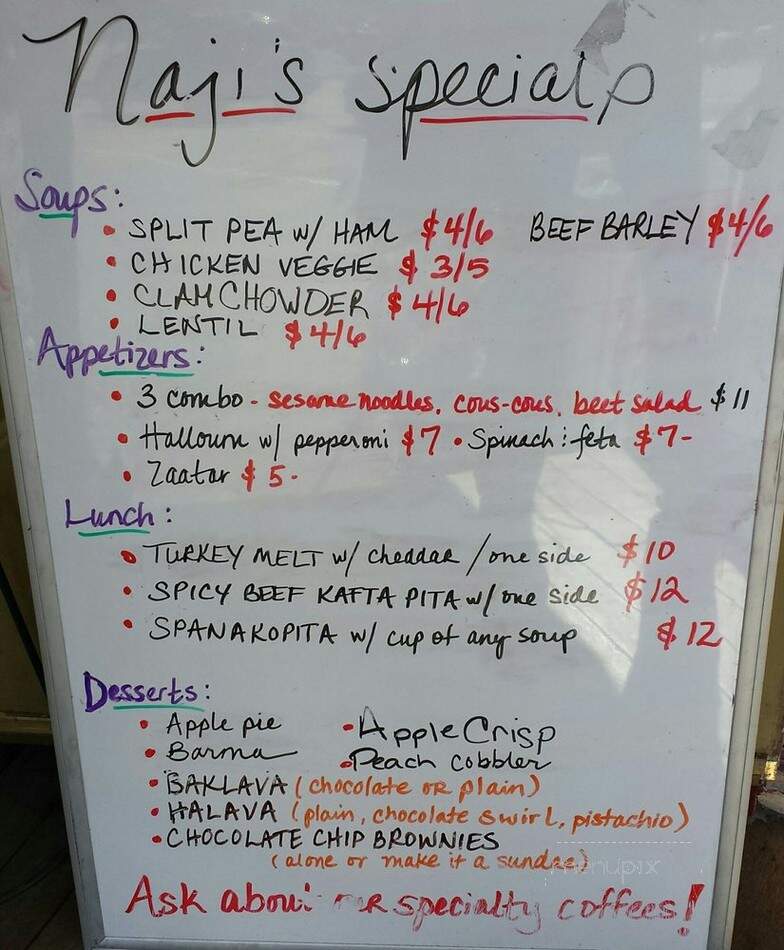 Naji's Specials
Soups:
• SPLIT PEA w/ HAM $4/6 BEEF BARLEY $4/6
• CHICKEN VEGGIE $3/5
• CLAM CHOWDER $4/6
• LENTIL $4/6
Appetizers:
• 3 combo - sesame noodles, cous-cous, beet salad $11
• Halloum w/ pepperoni $7 • Spinach : feta $7-
• Zaatar $5-
Lunch:
• TURKEY MELT w/ cheddar / one side $10
• SPICY BEEF KAFTA PITA w/ one side $12
• SPANAKOPITA w/ cup of any soup $12
Desserts:
• Apple pie • Apple Crisp
• Barma • Peach cobbler
• BAKLAVA (chocolate OR plain)
• HALAVA (plain, chocolate swirl, pistachio)
• CHOCOLATE CHIP BROWNIES
(alone or make it a sundae)
menupix
Ask about specialty coffees!